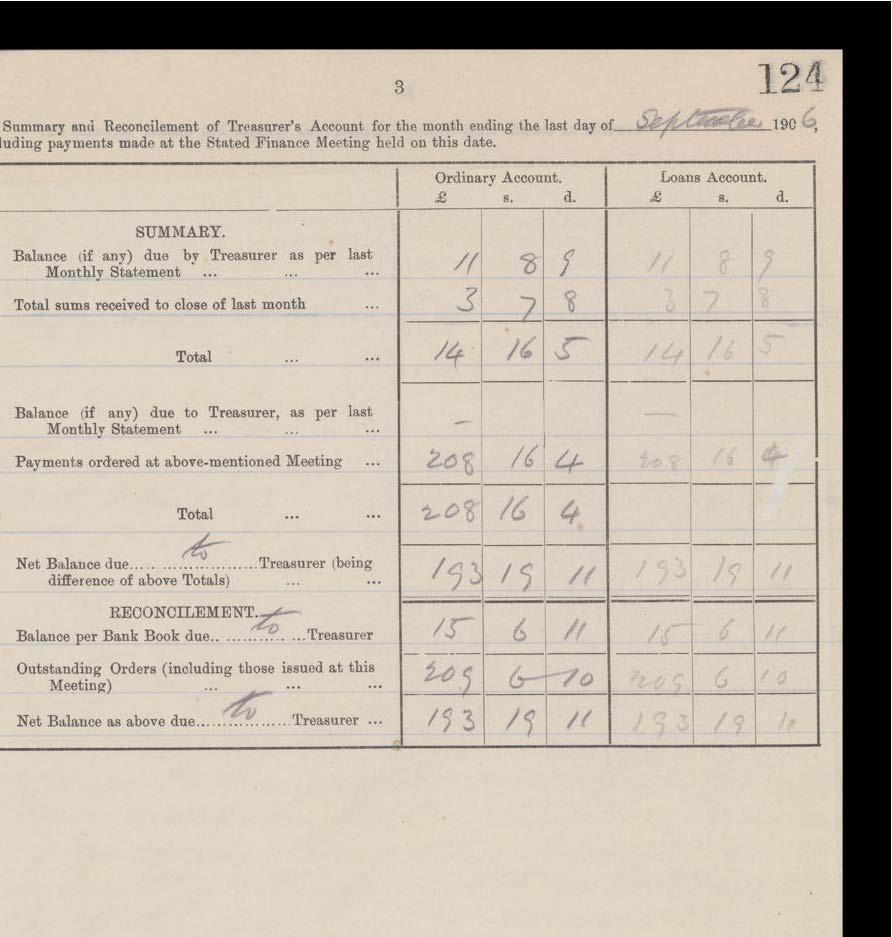 124
3
Summary and Reconcilement of Treasurer's Account for the month ending the last day of September 1906,
luding payments made at the Stated Finance Meeting held on this date.
Ordinary Account. Loans Account.
£ s. d. £ s. d.
SUMMARY.
Balance (if any) due by Treasurer as per last
Monthly Statement ... ... ... 11 8 9 11 8 9
Total sums received to close of last month ... 3 7 8 3 7 8
Total ... ... 14 16 5 14 16 5
Balance (if any) due to Treasurer, as per last
Monthly Statement ... ... ... — —
Payments ordered at above-mentioned Meeting ... 208 16 4 208 16 4
Total ... ... 208 16 4
Net Balance due...to...Treasurer (being
difference of above Totals) ... ... 193 19 11 193 19 11
RECONCILEMENT.
Balance per Bank Book due...to...Treasurer 15 6 11 15 6 11
Outstanding Orders (including those issued at this
Meeting) ... ... ... 209 6 10 209 6 10
Net Balance as above due...to...Treasurer ... 193 19 11 193 19 11